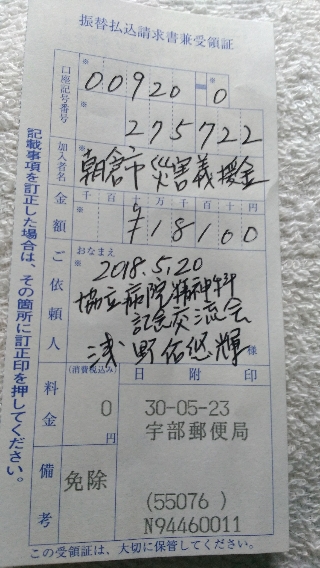 振替払込請求書兼受領証
口座記号番号
※
00920-0
※
275722
加入者名
※
朝倉市災害義援金
金額
千百十万千百十円
¥18100
ご依頼人
おなまえ
※
2018.5.20
協立病院精神科
記念交流会
浅野佑悠輝
様
料金
(消費税込み)
0
円
日附印
30-05-23
宇部郵便局
備考
免除
(55076 )
N94460011
記載事項を訂正した場合は、その箇所に訂正印を押してください。
この受領証は、大切に保管してください。